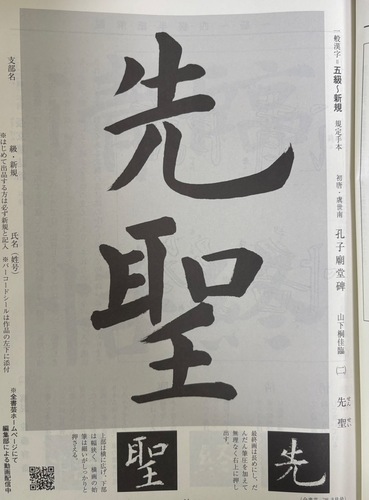 一般漢字＝五級～新規 規定手本 初唐・虞世南 孔子廟堂碑 山下桐佳臨 (二) 先聖
せん せい
先聖
支部名
級・新規
氏名(姓号)
※はじめて出品する方は必ず新規と記入 ※バーコードシールは作品の左下に添付
※全書芸ホームページにて
編集部による動画配信中
先
最終画は長めにし、だ
んだん筆圧を加えて
無理なく右上に押し
出す。
聖
上部は横に広げ、下部
は幅狭く。横画の始
筆は細いがしっかりと
押さえる。